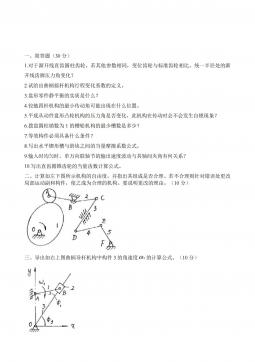 一、简答题（30 分）
1.对于渐开线直齿圆柱齿轮，若其他参数相同，变位齿轮与标准齿轮相比，线一半径处的渐
开线齿廓压力角变化？
2.试给出曲柄摇杆机构行程变化系数的定义。
3.盘形零件静平衡的实质是什么？
4.铰链四杆机构的最小传动角可能出现在什么位置。
5.平底从动件盘形凸轮机构的压力角是否变化，此机构在传动时会不会发生自锁现象？
6.拨盘圆柱销数为 1 的槽轮机构的最小槽数是多少？
7.等效构件必须具备什么条件？
8.写出水平楔形槽与滑块之间的当量摩擦系数公式。
9.输入转均匀时，单万向联轴节的输出速度波动与其轴间夹角有何关系？
10.写出直齿圆锥齿轮的当量齿数计算公式。
二、计算如左下图所示机构的自由度，并指出其组成是否合理。若不合理则针对错误处更改
局部运动副和构件，使之成为合理的机构。要说明更改的理由。（10 分）
C
2
B
3
1
D
4
5
E
F
三、导出如右上图曲柄导杆机构中构件 3 的角速度 ω₃ 的计算公式。（10 分）
y
B
2
A
φ₁
3
φ₃
O
x